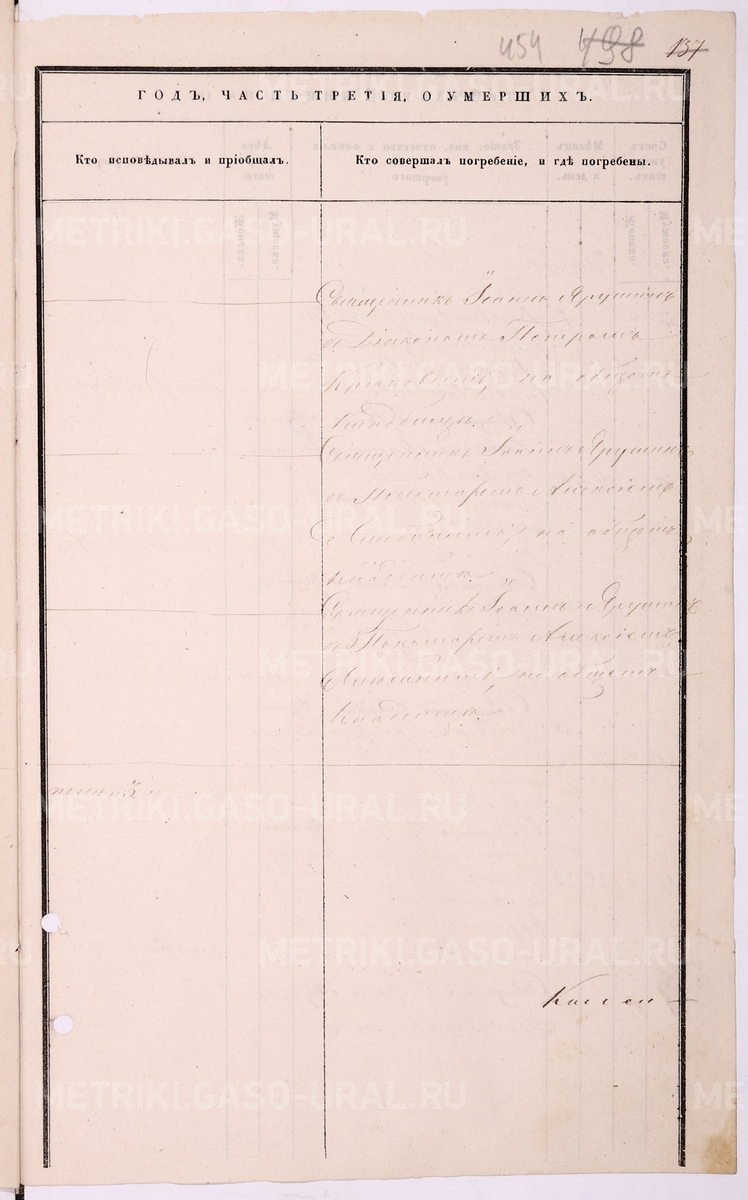 454 498 137
ГОДЪ, ЧАСТЬ ТРЕТІЯ, О УМЕРШИХЪ.
Кто исповѣдывалъ и пріобщалъ.
Кто совершалъ погребеніе, и гдѣ погребены.
Священникъ Іоаннъ Ярушинъ
съ Діакономъ Петромъ
на общемъ
кладбищѣ.
Священникъ Іоаннъ Ярушинъ
съ Пономаремъ Алексіемъ
на общемъ
кладбищѣ.
Священникъ Іоаннъ Ярушинъ
съ Пономаремъ Алексіемъ
на общемъ
кладбищѣ.
METRIKI.GASO-URAL.RU